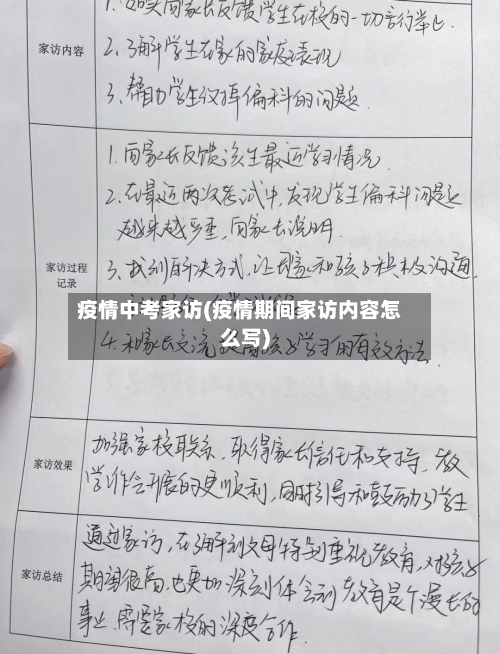 家访内容
1.如实向家长反馈学生在校的一切言行举止.
2.了解学生在家的家庭表现
3.帮助学生改掉偏科的问题.
家访过程
记录
1.向家长反馈该生最近学习情况.
2.在最近两次考试中,发现学生偏科问题
越来越严重,向家长说明.
3.找到解决方式,让家长和孩子积极沟通
疫情中考家访(疫情期间家访内容怎
么写)
4.和家长交流提高孩子学习的有效方法.
家访效果
加强家校联系,取得家长信任和支持,教
学工作会开展的更顺利,同时引导和鼓励了学生
家访总结
通过家访,在了解到父母特别重视教育,对孩子
期望很高,也更加深刻体会到教育是个漫长的
事业.需要家校的深度合作.